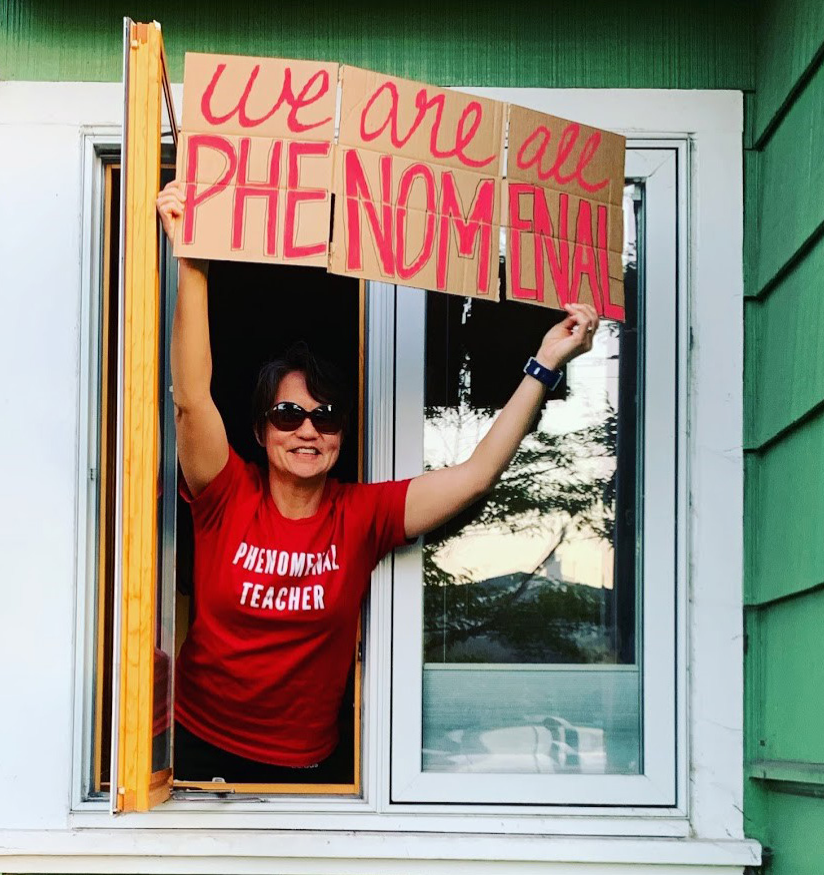 we are all
PHENOMENAL
PHENOMENAL
TEACHER